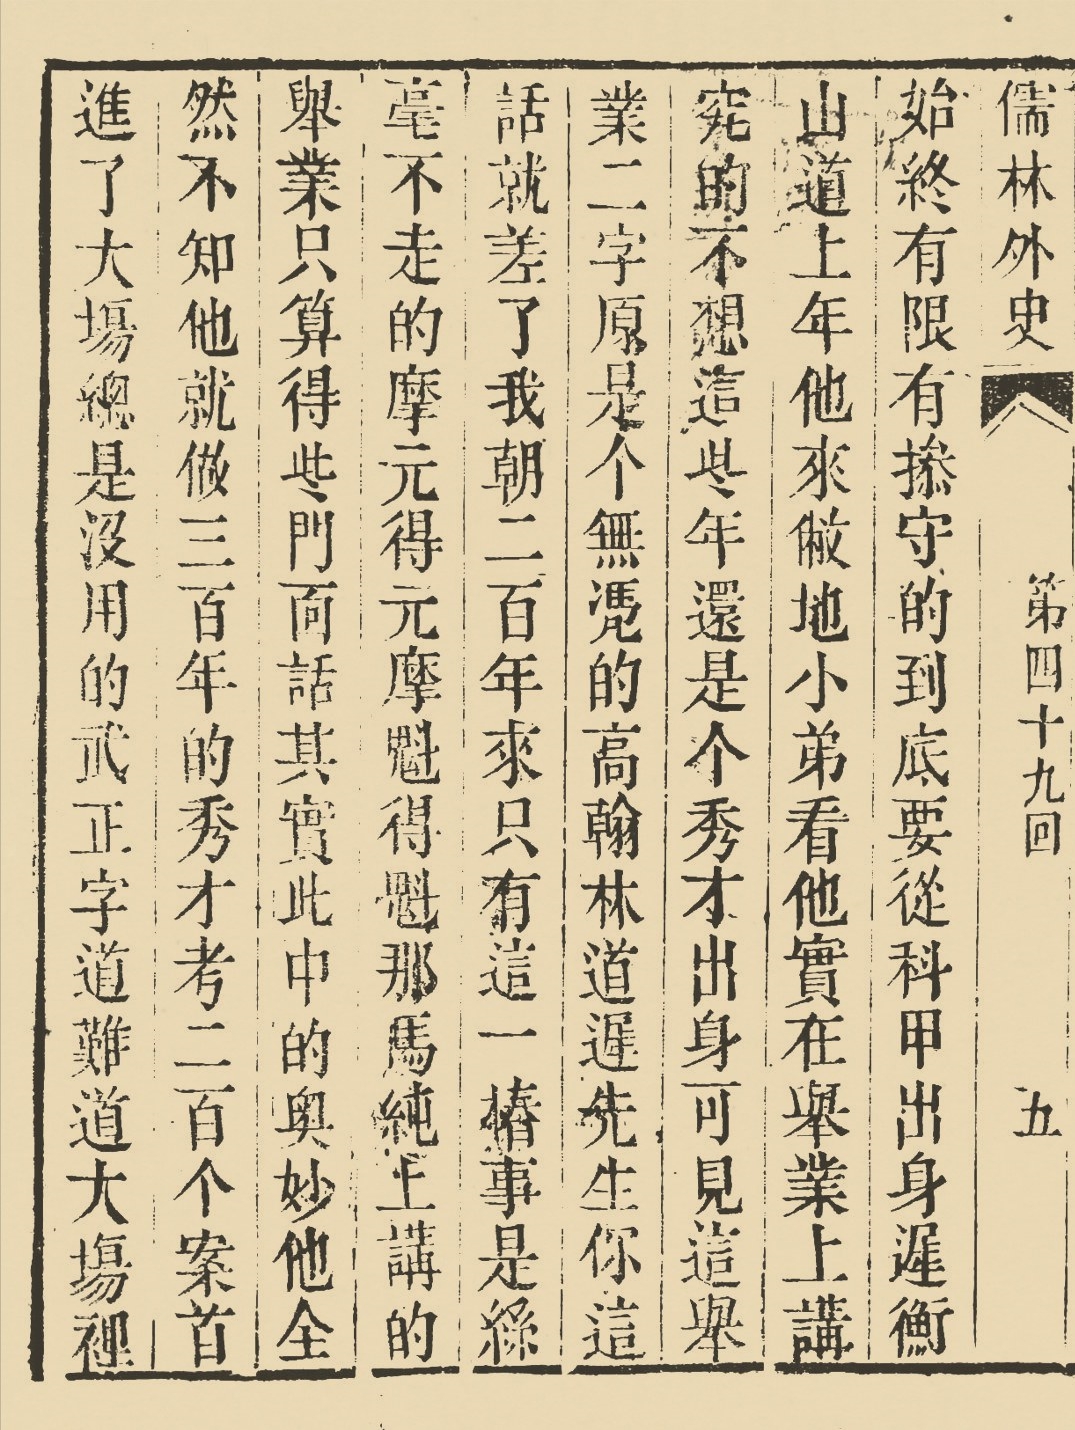 儒林外史
第四十九回
五
始終有限有操守的到底要從科甲出身遲衡
山道上年他來敝地小弟看他實在舉業上講
究的不想這些年還是个秀才出身可見這舉
業二字原是个無凴的高翰林道遲先生你這
話就差了我朝二百年來只有這一樁事是絲
毫不走的摩元得元摩魁得魁那馬純上講的
舉業只算得些門靣話其實此中的奥妙他全
然不知他就做三百年的秀才考二百个案首
進了大塲總是没用的武正字道難道大塲裡